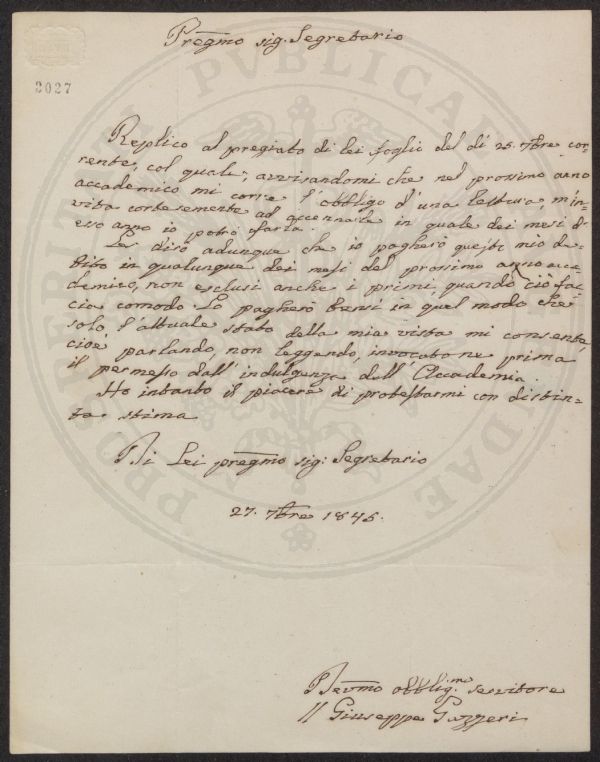 Pregmo sig. Segretario
2027
PROSPERITATI PVBLICAE
Replico al pregiato di lei foglio del dì 25. 7bre cor-
rente, col quale, avvisandomi che nel prossimo anno
accademico mi corre l'obbligo d'una lettura, m'in-
vita cortesemente ad accennarle in quale dei mesi di
esso anno io potrò farla.
Le dirò adunque che io pagherò questo mio de-
bito in qualunque dei mesi del prossimo anno acca-
demico, non esclusi anche i primi, quando ciò fac-
cia comodo. Lo pagherò bensì in quel modo che
solo, l'attuale stato della mia vista mi consente,
cioè parlando, non leggendo, invocatone prima
il permesso dall'indulgenza dell'Accademia.
Ho intanto il piacere di protestarmi con distin-
ta stima
Di Lei pregmo sig: Segretario
27. 7bre 1845.
Devmo obblig.mo servitore
Giuseppe Gazzeri